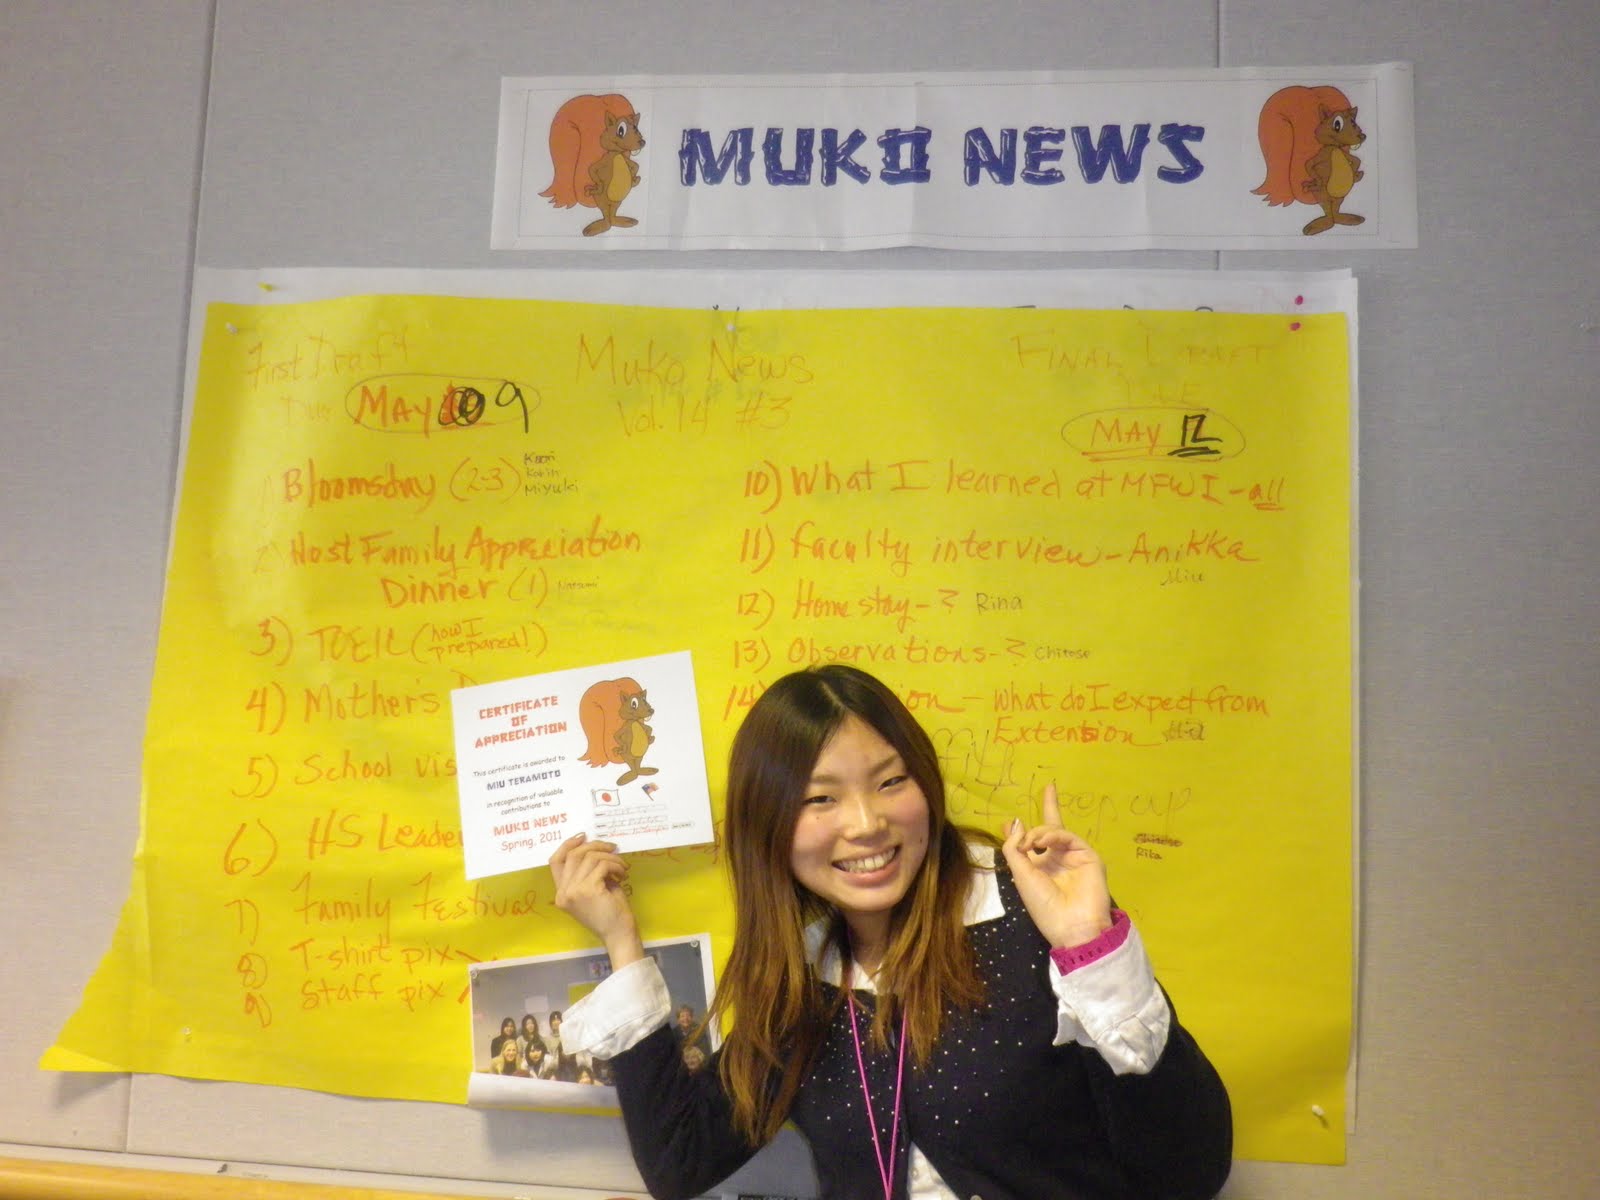 MUKO NEWS
First Draft
Due MAY 9
Muko News
Vol. 14 #3
FINAL DRAFT
DUE
MAY 12
1) Bloomsday (2-3) Kaori
Miyuki
2) Host Family Appreciation
Dinner (1) Natsumi
3) TOEIC (how I
prepared!)
4) Mother's
5) School vis
6) HS Leade
7) Family Festival -
8) T-shirt pix
9) Staff pix
10) What I learned at MFWI - all
11) faculty interview - Anikka
Miu
12) Homestay - ? Rina
13) Observations - ? Chitose
14) sion - What do I expect from
Extension
keep up
Rika
CERTIFICATE
OF
APPRECIATION
This certificate is awarded to
MIU TERAMOTO
in recognition of valuable
contributions to
MUKO NEWS
Spring, 2011